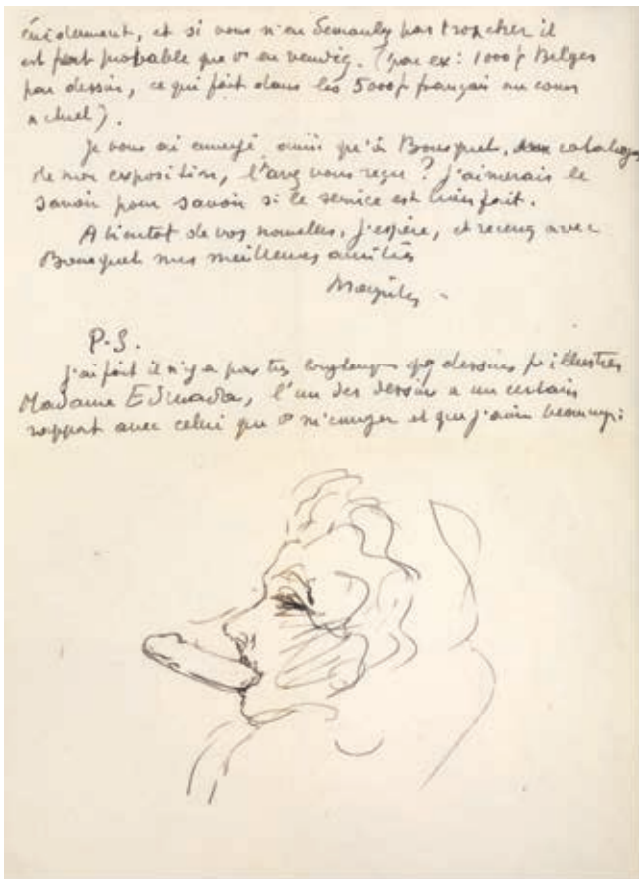 évidemment, et si vous n'en demandez pas trop cher il
est fort probable que v en vendiez. (par ex: 1000 f Belges
par dessin, ce qui fait dans les 5000 f français au cours
actuel).
Je vous ai envoyé ainsi qu'à Bousquet, catalogue
de mon exposition, l'avez vous reçu ? J'aimerais le
savoir pour savoir si le service est bien fait.
A bientôt de vos nouvelles, j'espère, et recevez avec
Bousquet mes meilleures amitiés
Magritte
P.S.
j'ai fait il n'y a pas très longtemps qq dessins p illustrer
Madame Edwarda, l'un des dessins a un certain
rapport avec celui que m'envoyez et que j'aime beaucoup: